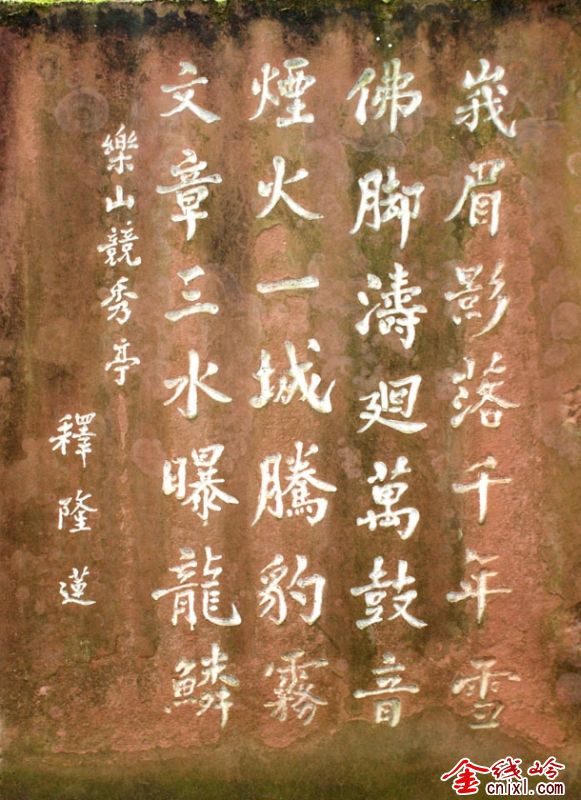 峩眉影落千年雪
佛脚濤迴萬鼓音
煙火一城騰豹霧
文章三水曝龍鱗
樂山競秀亭
釋隆蓮
金线岭
cnlxl.com